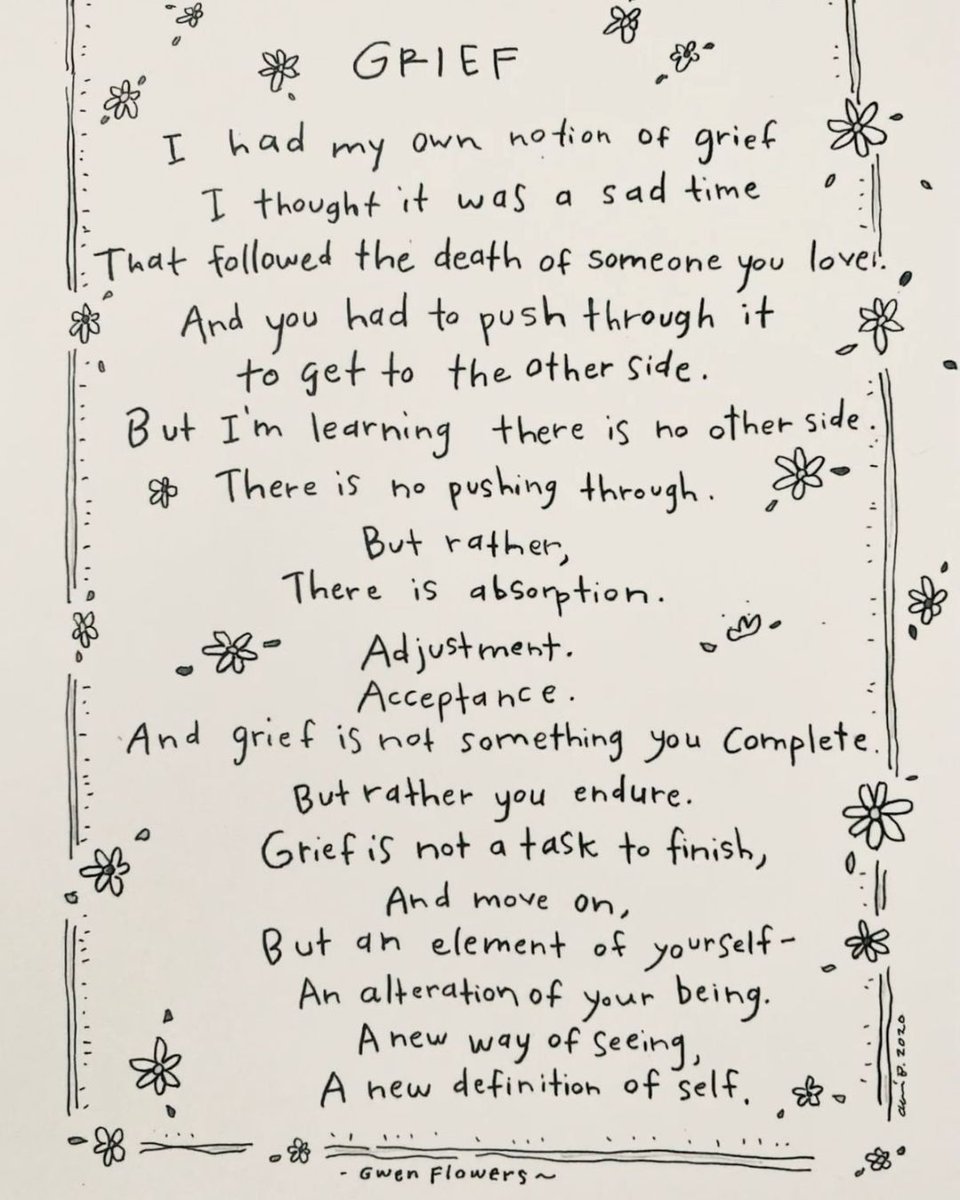 GRIEF
I had my own notion of grief
I thought it was a sad time
That followed the death of someone you love.
And you had to push through it
to get to the other side.
But I'm learning there is no other side.
There is no pushing through.
But rather,
There is absorption.
Adjustment.
Acceptance.
And grief is not something you complete.
But rather you endure.
Grief is not a task to finish,
And move on,
But an element of yourself-
An alteration of your being.
A new way of seeing,
A new definition of self.
- Gwen Flowers ~
2020